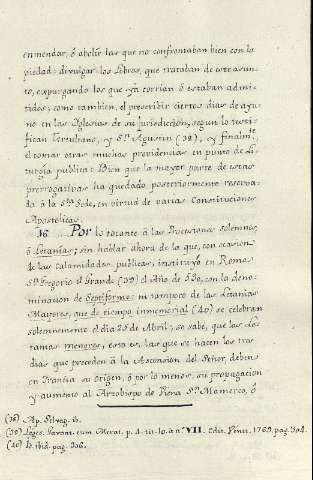 enmendar, ó abolir las que no confrontaban bien con la
piedad: divulgar los Libros, que trataban de este asun-
to, expurgando los que ya corrian ó estaban admi-
tidos; como tambien, el prescribir ciertos dias de ayu-
no en las Iglesias de su jurisdiccion, segun lo testi-
fican Tertuliano, y Sn. Agustin (38), y finalmte.
el tomar otras muchas providencias en punto de Li-
turgia publica: Bien que la mayor parte de estas
prerrogativas ha quedado posteriormente reserva-
da à la Sta. Sede, en virtud de varias Constituciones
Apostólicas.
16. Por lo tocante à las Procesiones solemnes,
ó Letanias; sin hablar ahora de la que, con ocasion
de las calamidades publicas, instituyó en Roma
Sn. Gregorio el Grande (39) el Año de 590, con la deno-
minacion de Septiforme: ni tampoco de las Letanias
Mayores, que de tiempo inmemorial (40) se celebran
solemnemente el dia 25 de Abril; se sabe, que las Le-
tanias menores, esto es, las que se hacen los tres
dias que preceden à la Ascension del Señor, deben
en Francia su origen, ó por lo menos, su propagacion
y aumento al Arzobispo de Viena Sn. Mamerco, ó
(38) Ap. Selvag. ib.
(39) Gavant. cum Merat. p. 4. tit. 10. à nº. VII. Edit. Venet. 1769. pag. 304.
(40) Ib. ibid. pag. 306.